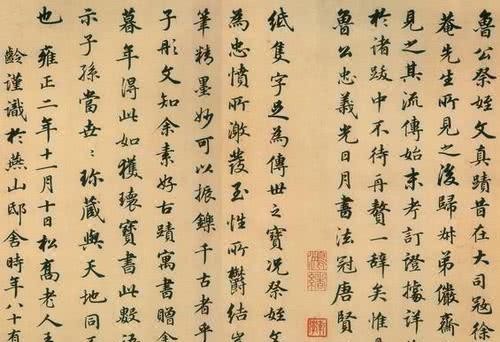 魯公祭姪文真蹟昔在大司寇徐
菴先生所見之後歸叔弟儼齋
見之其流傳始末考訂證據詳
於諸跋中不待再贅一辭矣惟
魯公忠義光日月書法冠唐賢
紙隻字足為傳世之寶況祭姪文
為忠憤所激發至性所鬱結
筆精墨妙可以振鑠千古者乎
子彤文知余素好古蹟寓書贈余
暮年得此如獲瓌寶書此數語
示子孫當世〻珍藏與天地同
也 雍正二年十一月十日松喬老人王
齡謹識於燕山邸舍時年八十有